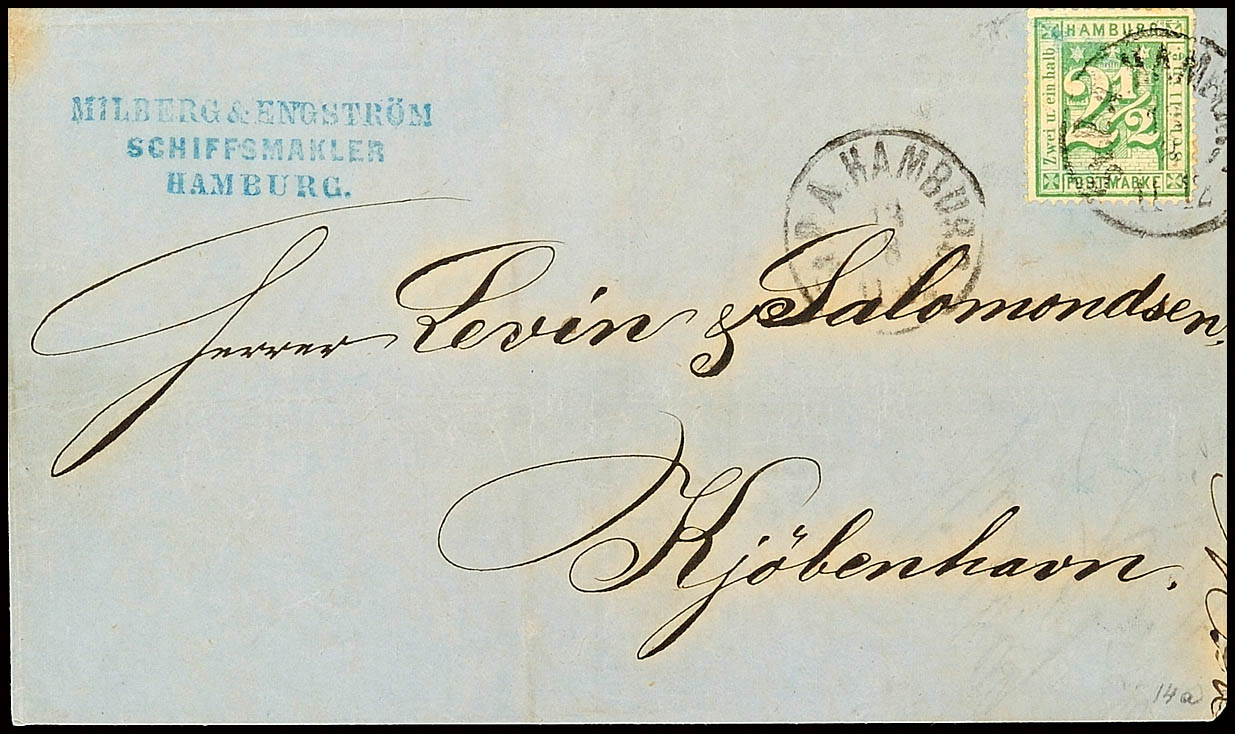 MILBERG & ENGSTRÖM
SCHIFFSMAKLER
HAMBURG.
HAMBURG
Zwei u. ein halb.
2 1/2
POSTMARKE
HAMBURG
Herren Levin & Salomondsen,
Kjöbenhavn.
14a